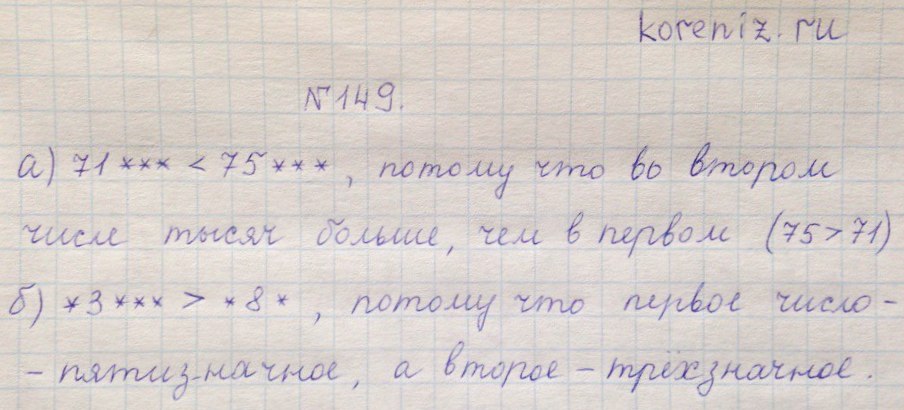 koreniz.ru
№149.
а) 71*** < 75***, потому что во втором
числе тысяч больше, чем в первом (75>71)
б) *3*** > *8*, потому что первое число-
-пятизначное, а второе - трёхзначное.